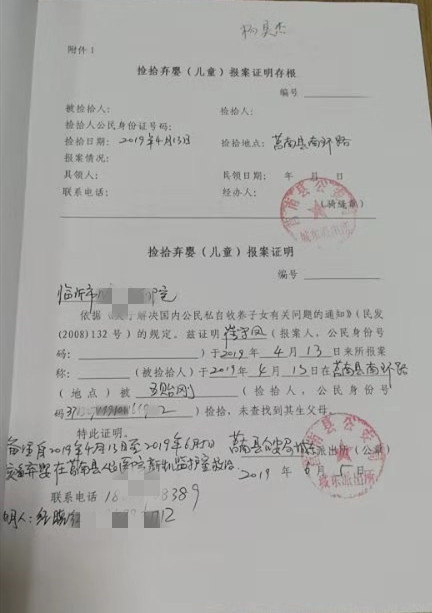 附件1
捡拾弃婴（儿童）报案证明存根
编号
被捡拾人： 捡拾人：
捡拾人公民身份证号码：
捡拾日期：2019年4月13日 捡拾地点：莒南县南环路
报案情况：
具领人： 具领日期： 年 月 日
联系电话： 经办人：
（骑缝章）
捡拾弃婴（儿童）报案证明
编号
临沂市 院
依据《关于解决国内公民私自收养子女有关问题的通知》（民发
(2008)132号）的规定，兹证明 （报案人，公民身份号
码： ）于2019年4月13日来所报案
称： （被捡拾人）于2019年4月13日在莒南县南环路
（地点）被 （捡拾人，公民身份号
码37 2）捡拾，未查找到其生父母。
特此证明。
2019年4月13日至2019年6月5日 莒南县公安局城东派出所（公章）
弃婴在莒南县人民医院 监护室 2019年6月5日
联系电话 8389
明人： 12
城东派出所